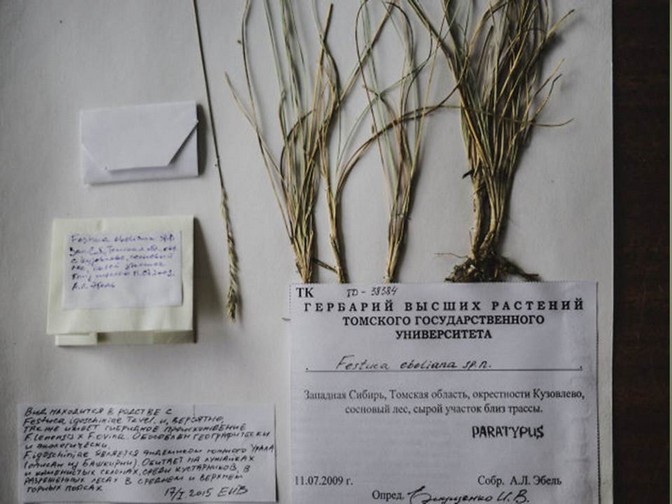 ТК TO - 38384
ГЕРБАРИЙ ВЫСШИХ РАСТЕНИЙ
ТОМСКОГО ГОСУДАРСТВЕННОГО
УНИВЕРСИТЕТА
Festuca eboliana sp.n.
Западная Сибирь, Томская область, окрестности Кузовлево,
сосновый лес, сырой участок близ трассы.
PARATYPUS
11.07.2009 г. Собр. А.Л. Эбель
Опред.
Festuca eboliana sp.
А.Л. Эбель
ВИД НАХОДИТСЯ В РОДСТВЕ С
Festuca igoschiniae Tzvel. И, ВЕРОЯТНО,
ТАКЖЕ ИМЕЕТ ГИБРИДНОЕ ПРОИСХОЖДЕНИЕ
F. lenensis x F. ovina. ОБОСОБЛЕН ГЕОГРАФИЧЕСКИ
И ЭКОЛОГИЧЕСКИ.
F. igoschiniae ЯВЛЯЕТСЯ ЭНДЕМИКОМ УРАЛА
(ОПИСАН ИЗ БАШКИРИИ). ОБИТАЕТ НА ЛУЖАЙКАХ
И КАМЕНИСТЫХ СКЛОНАХ, СРЕДИ КУСТАРНИКОВ, В
РАЗРЕЖЕННЫХ ЛЕСАХ В СРЕДНЕМ И ВЕРХНЕМ
ГОРНЫХ ПОЯСАХ
2015